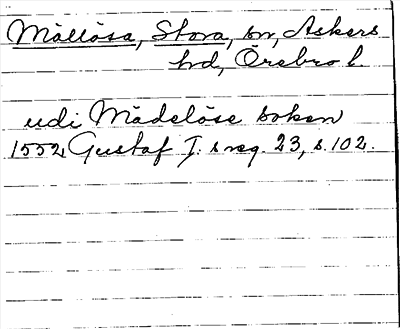 Mällösa, Stora, sn, Askers
hd, Örebro l
udi Mädelöse soken
1552 Gustaf I:s reg. 23, s. 102.